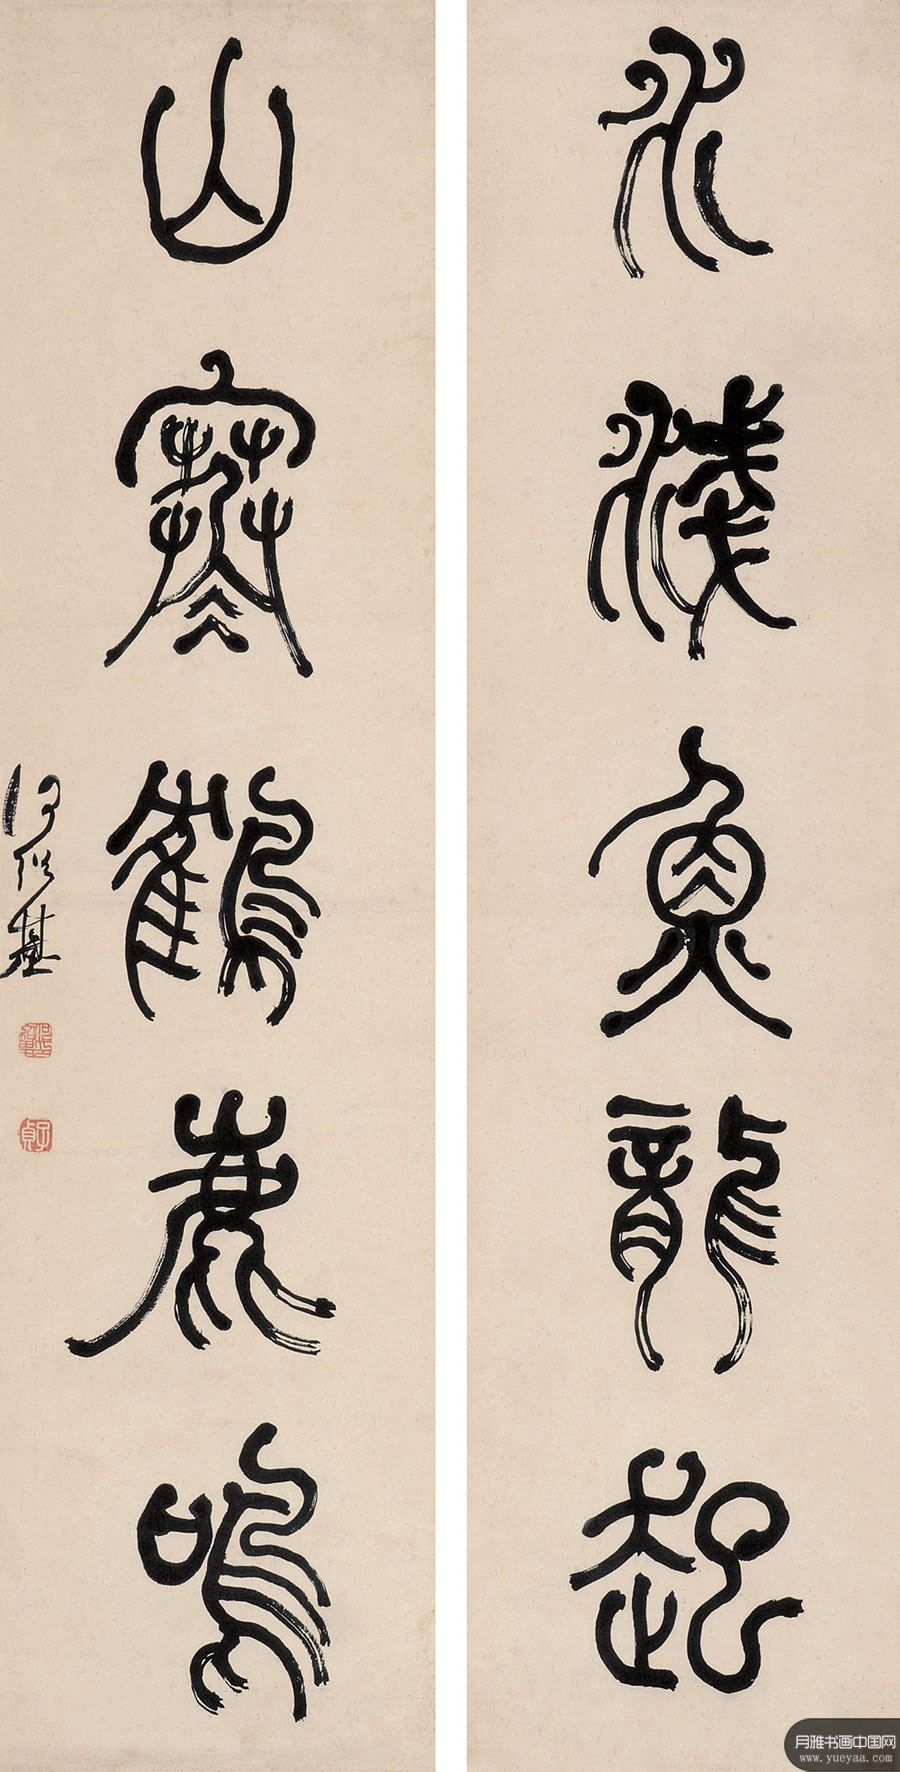 水淺魚龍起
山寒鶴鹿鳴
何紹基
子貞
月雅书画中国网
www.yueyaa.com